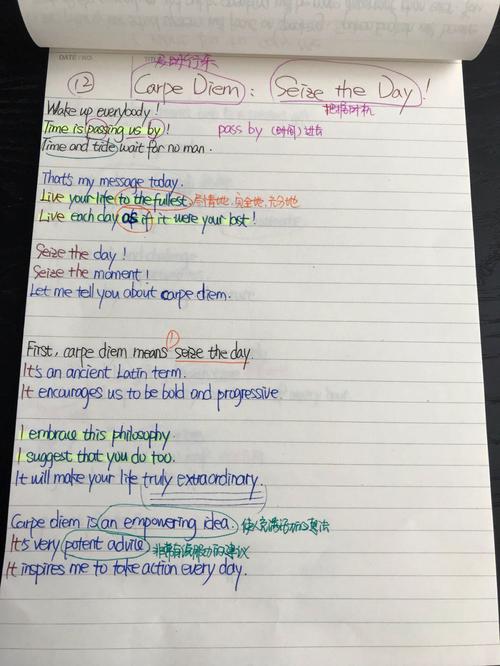 DATE / NO.
及时行乐
⑫ Carpe Diem : Seize the Day !
把握时机
Wake up everybody !
Time is passing us by ! pass by (时间)过去
Time and tide wait for no man .
That's my message today.
Live your life to the fullest. 尽情地,完全地,充分地
Live each day as if it were your last !
Seize the day !
Seize the moment !
Let me tell you about carpe diem.
①
First, carpe diem means seize the day.
It's an ancient Latin term.
It encourages us to be bold and progressive.
I embrace this philosophy.
I suggest that you do too.
It will make your life truly extraordinary.
Carpe diem is an empowering idea. 使人充满活力的想法
It's very potent advice 非常有说服力的建议
It inspires me to take action every day.